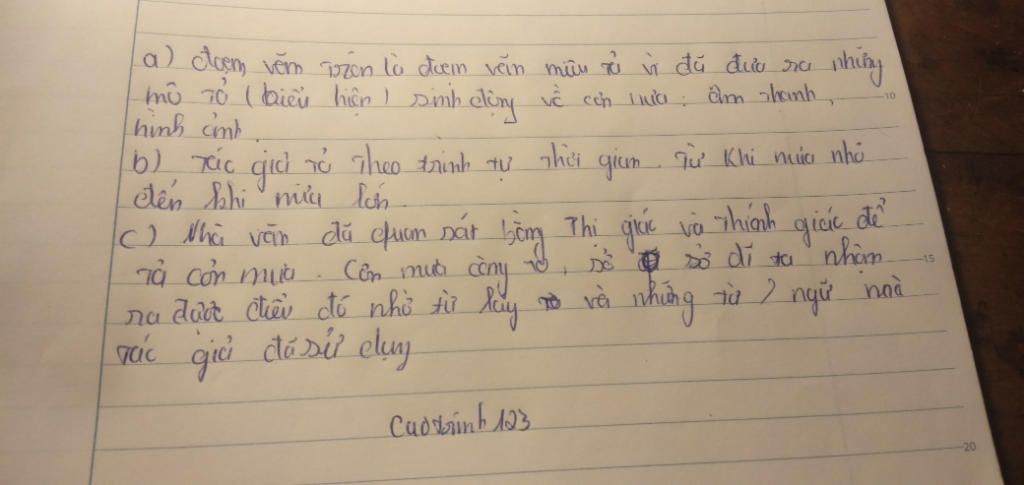 a) đoạn văn trên là đoạn văn miêu tả vì đã đưa ra những
mô tả (biểu hiện) sinh động về cơn mưa: âm thanh,
hình ảnh.
b) tác giả tả theo trình tự thời gian. Từ khi mưa nhỏ
đến khi mưa lớn.
c) Nhà văn đã quan sát bằng thị giác và thính giác để
tả cơn mưa. Cơn mưa càng sở dĩ ta nhận
ra được điều đó nhờ từ láy và những từ ngữ mà
tác giả đã sử dụng
Caotrinh123
10
15
20